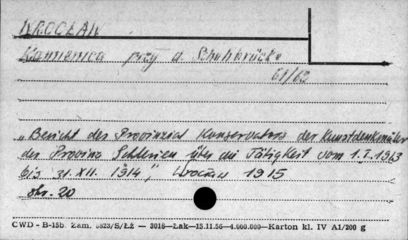 WROCŁAW
Kamienica przy u.
61/62
"Bericht des Provinzial Konservators der Kunstdenkmäler
der Provinz Schlesien über die Tätigkeit vom 1.I.1913
bis 31.XII. 1914", Wrocław 1915
str. 20
CWD - B-15b. Zam. S/ŁŻ — 2016—Lak—15.11.56—4.000.000—Karton kl. IV A1/200 g